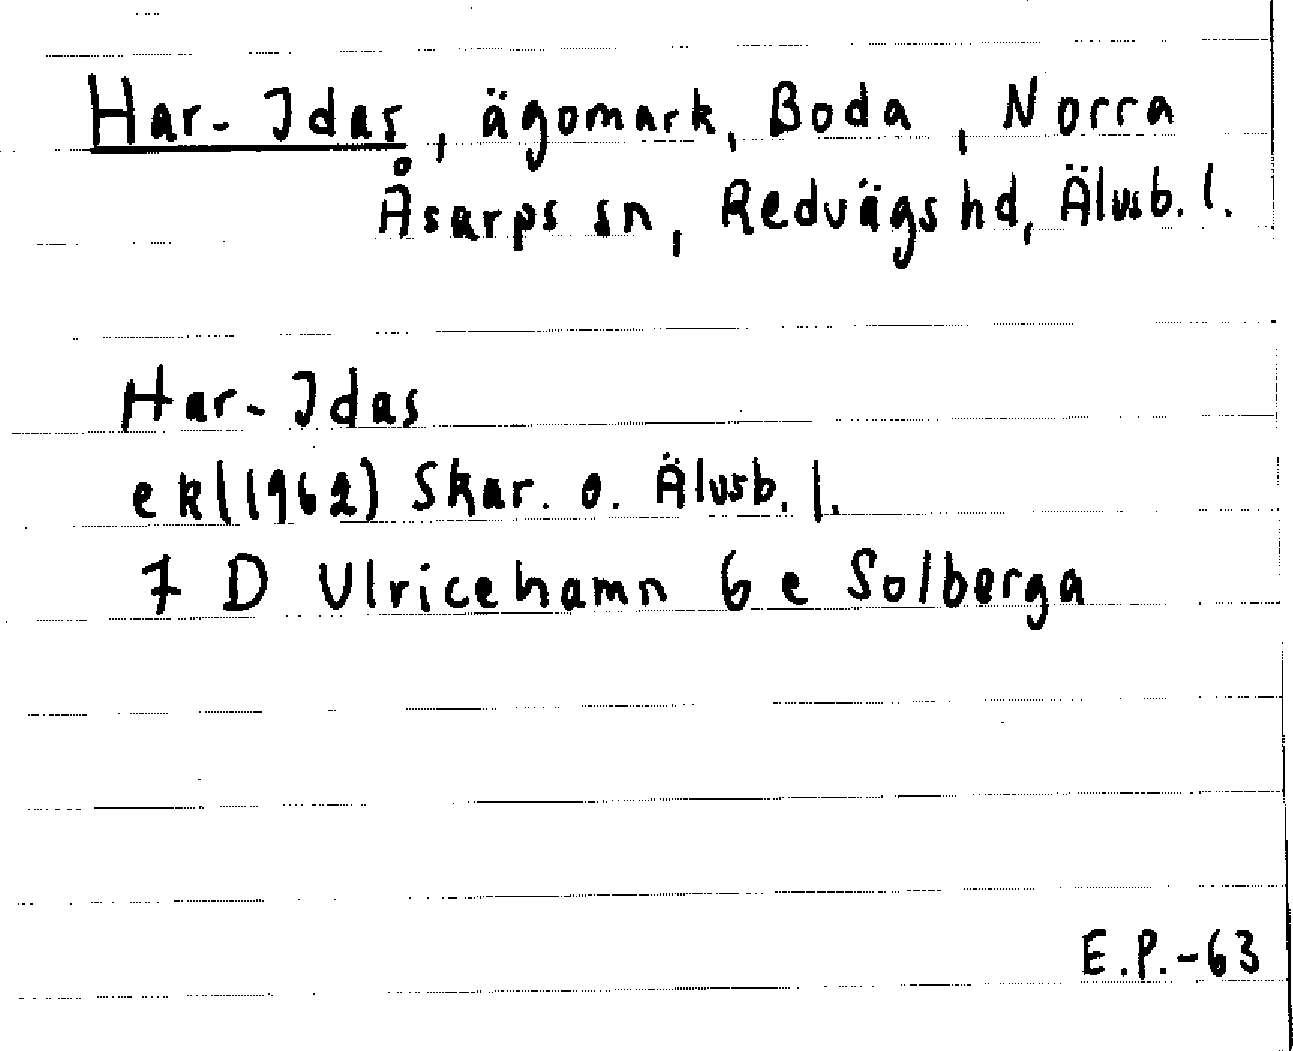 Har-Idas, ägomark, Boda, Norra
Åsarps sn, Redvägs hd, Älvsb. l.
Har-Idas
ek (1962) Skar. o. Älvsb. l.
7 D Ulricehamn 6 e Solberga
E.P.-63